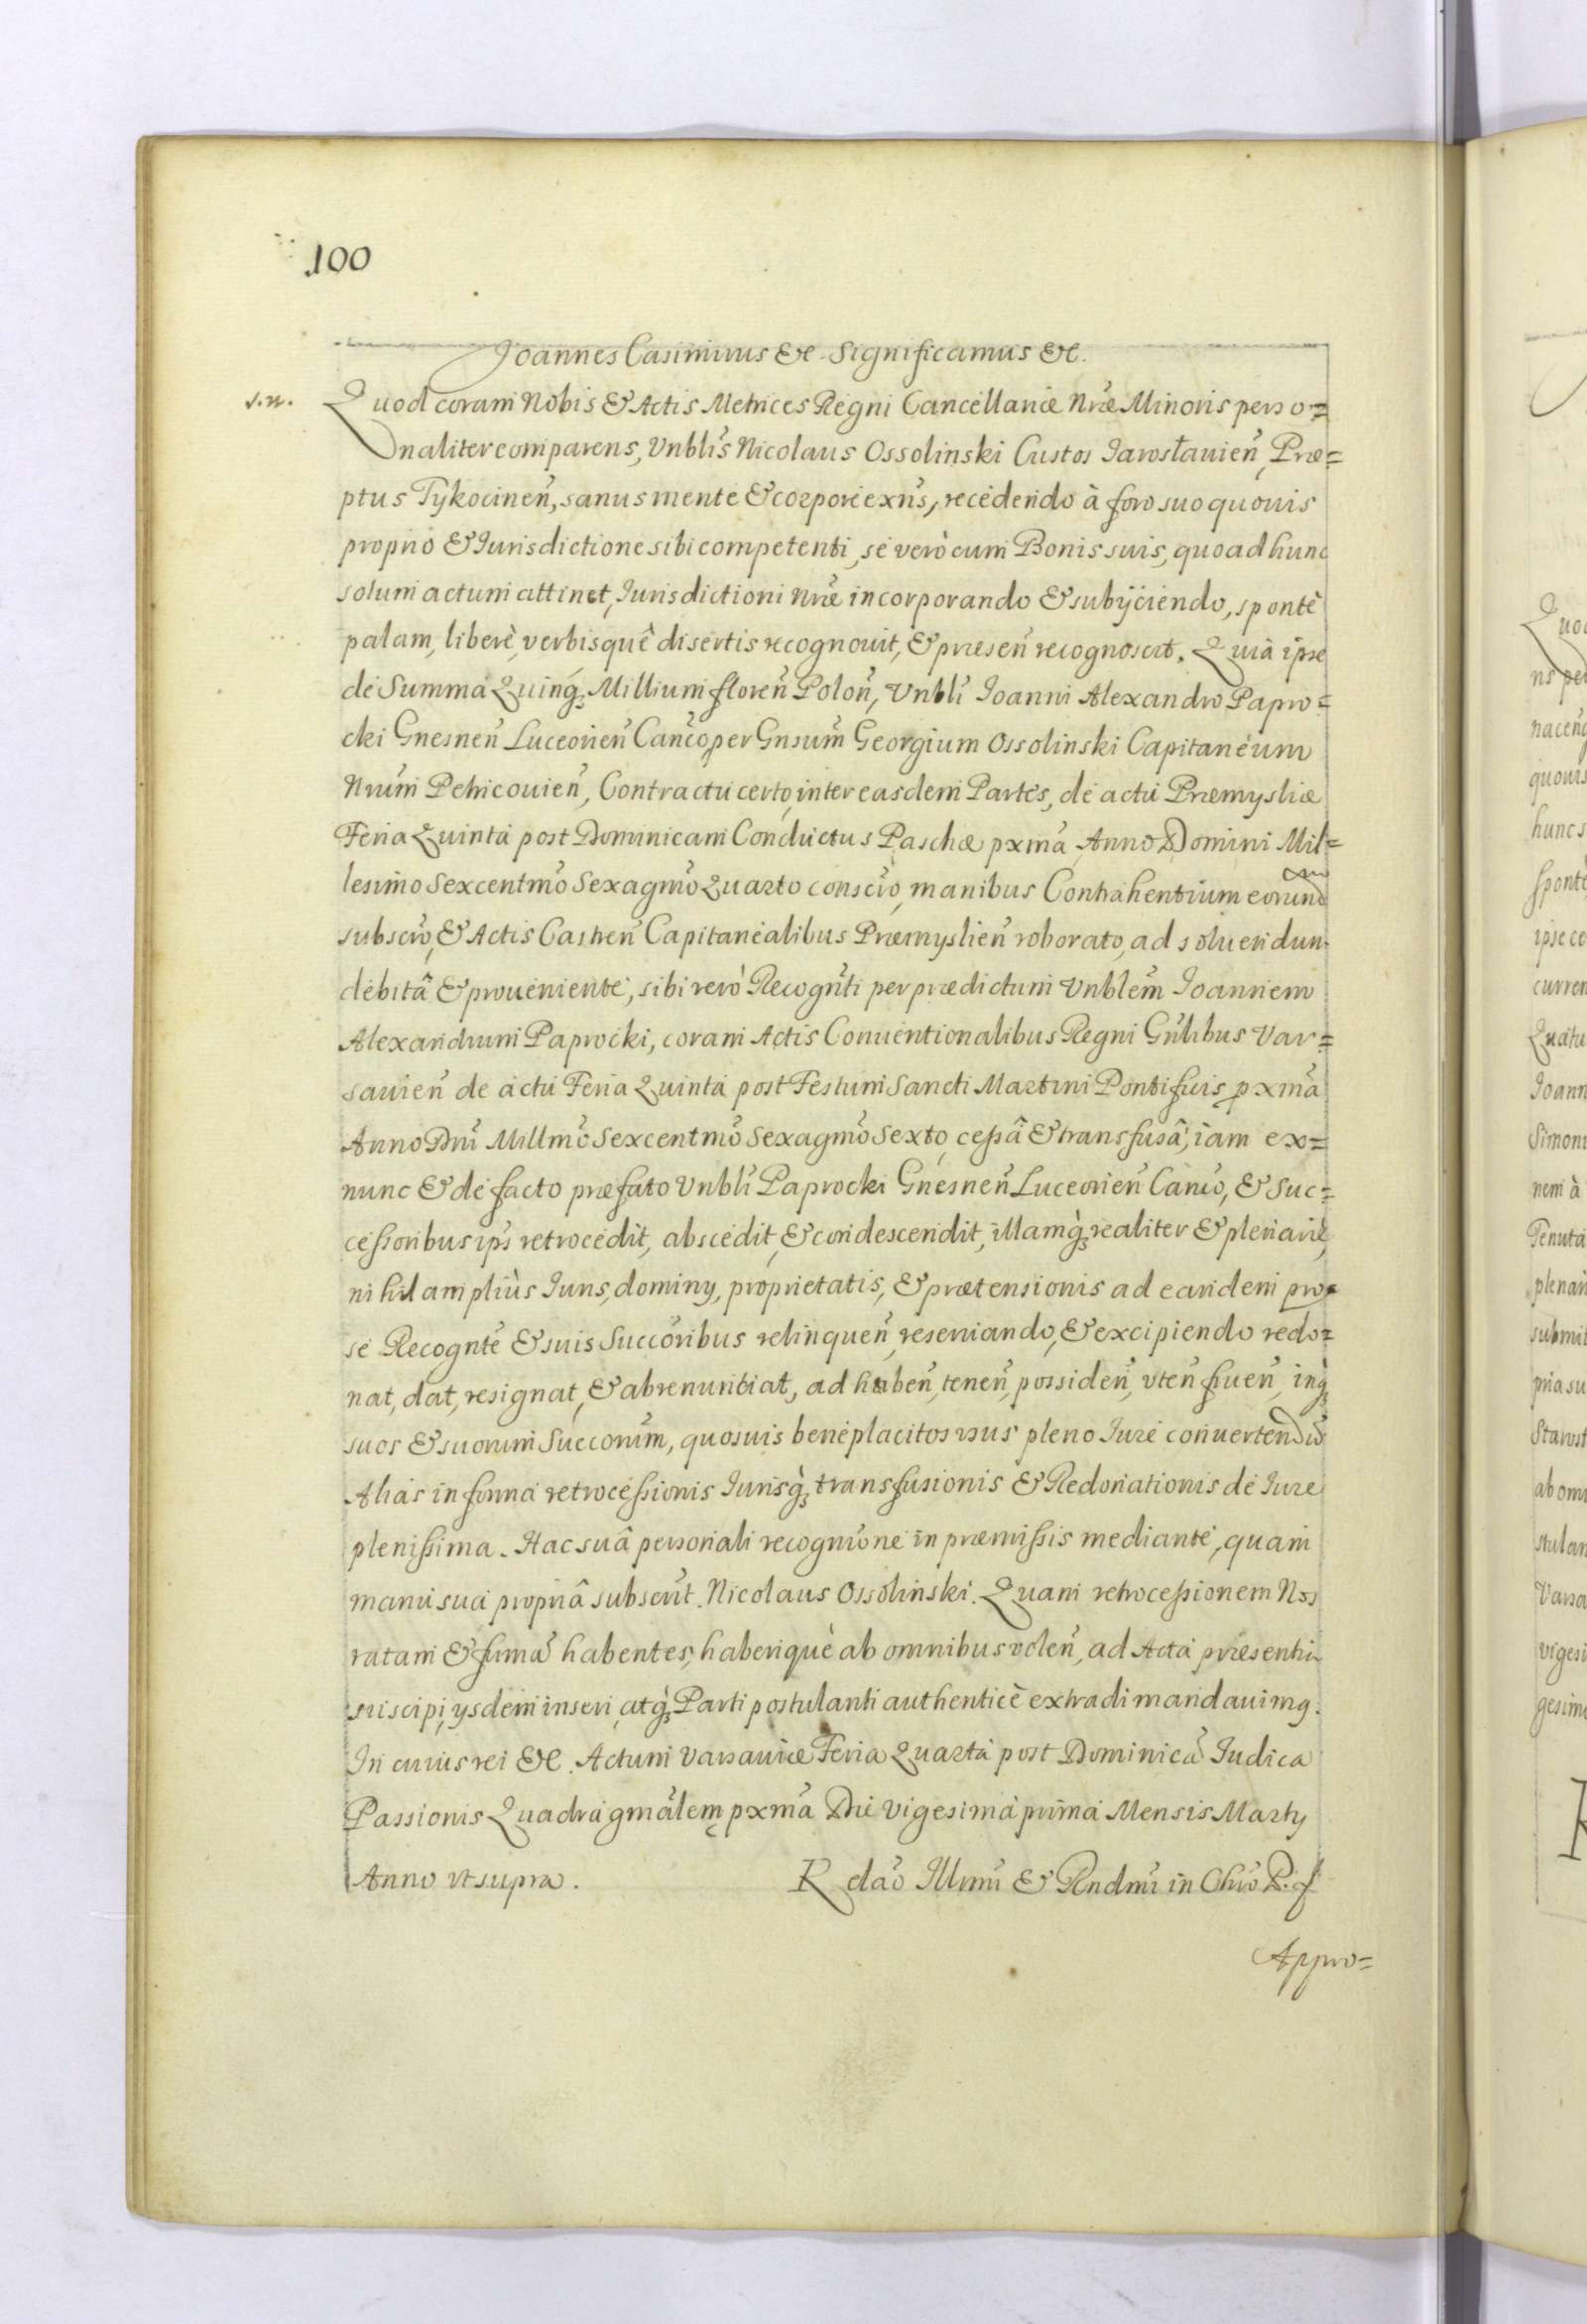 100
Joannes Casimirus &c Significamus &c.
s.n.
Quod coram Nobis & Actis Metrices Regni Cancellariæ Nræ Minoris perso=
naliter comparens, Vnblis Nicolaus Ossolinski Custos Jarosłauien̄, Præ=
ptus Tykocinen̄, sanus mente & corpore exn̄s, recedendo à foro suo quouis
proprio & Jurisdictione sibi competenti, se verò cum Bonis suis, quoad hunc
solum actum attinet, Jurisdictioni Nræ incorporando & subÿciendo, spontè
palam, liberè, verbisquè disertis recognouit, & præsen̄ recognoscit. Quia ipse
de Summa Quinq₃ Millium floren̄ Polon̄, Vnbli Joanni Alexandro Papro=
cki Gnesnen̄ Luceorien̄ Can̄co, per Gnsum̄ Georgium Ossolinski Capitaneum
Nrum̄ Petricouien̄, Contractu certo, inter easdem Partes, de actu Præmysliæ
Feria Quinta post Dominicam Conductus Paschæ pxma Anno Domini Mil=
lesimo Sexcentmo Sexagmo Quarto conscro, manibus Contrahentium eorund
subscro, & Actis Castren̄ Capitanealibus Præmyslien̄ roborato, ad soluendum
debitâ & proueniente, sibi verò Recogn̄ti per prædictum Vnblem̄ Joannem
Alexandrum Paprocki, coram Actis Conuentionalibus Regni Gn̄libus Var=
sauien̄ de actu Feria Quinta post Festum Sancti Martini Pontificis pxma
Anno Dni Millmo Sexcentmo Sexagmo Sexto, ceſsâ & transfusâ, iam ex=
nunc & de facto præfato Vnbli Paprocki Gnesnen̄ Luceorien̄ Can̄co, & Suc=
ceſsoribus ips̄ retrocedit, abscedit, & condescendit, illamq₃ realiter & plenariè,
nihil ampliùs Juris, dominÿ, proprietatis, & prætensionis ad eandem pro
se Recognte & suis Succoribus relinquen̄, reseruando, & excipiendo redo=
nat, dat, resignat, & abrenuntiat, ad haben̄, tenen̄, possiden̄, vten̄ fruen̄, inq₃
suos & suorum Succorum̄, quosuis beneplacitos vsus pleno Jure conuertend̄
Alias in forma retroceſsionis Jurisq₃ transfusionis & Redonationis de Jure
pleniſsima. Hac suâ personali recognone in præmiſsis mediante, quam
manu sua propriâ subscrit. Nicolaus Ossolinski. Quam retroceſsionem Nos
ratam & firma habentes, haberiquè ab omnibus volen̄, ad Acta præsentia
suscipi, ÿsdem inseri, atq₃ Parti postulanti authenticè extradi mandauimq.
In cuius rei &c. Actum Varsauiæ Feria Quarta post Dominicā Judica
Passionis Quadragmalem pxma Die vigesima prima Mensis Martÿ
Anno vt supra.
Relāo Illmi & Rndmi in Chro P. f
Appro=